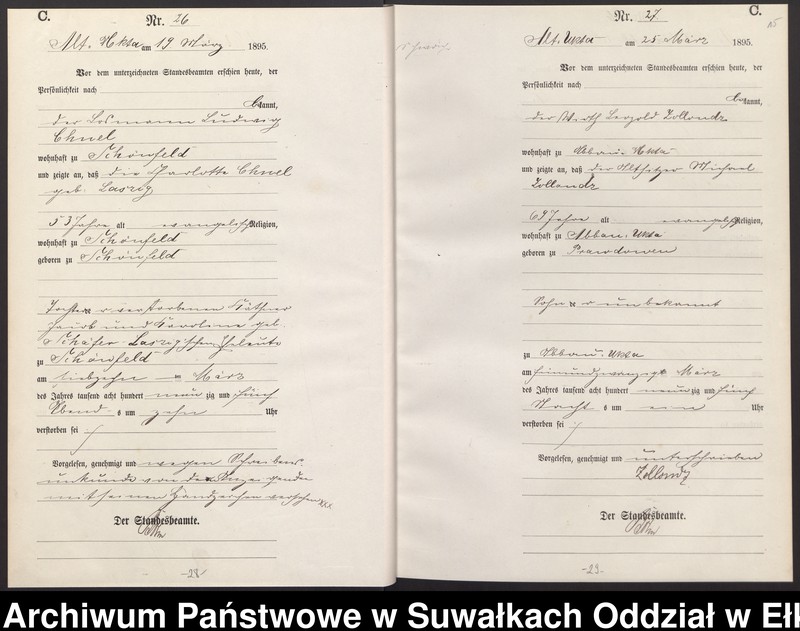 C.
Nr. 26
Alt. Ukta am 19 März 1895.
Vor dem unterzeichneten Standesbeamten erschien heute, der
Persönlichkeit nach
bekannt,
der Losmann Ludwig
Chnel
wohnhaft zu Schönfeld
und zeigte an, daß die Charlotte Chnel
geb. Laszig
53 Jahre alt evangelisch Religion,
wohnhaft zu Schönfeld
geboren zu Schönfeld
Tochter der verstorbenen Käthner
Jacob und Karoline geb.
Schäfer Laszig'schen Eheleute
zu Schönfeld
am siebzehn März
des Jahres tausend acht hundert neunzig und fünf
Abends um zehn Uhr
verstorben sei
Vorgelesen, genehmigt und wegen Schreibens
unkunde von dem Anzeigenden
mit seinem Handzeichen versehen xxx
Der Standesbeamte.
-28-
C.
Nr. 27
Alt. Ukta am 25 März 1895.
Vor dem unterzeichneten Standesbeamten erschien heute, der
Persönlichkeit nach
bekannt,
der Wirth Leopold Zollondz
wohnhaft zu Abbau Ukta
und zeigte an, daß der Altsitzer Michael
Zollondz
69 Jahre alt evangelisch Religion,
wohnhaft zu Abbau Ukta
geboren zu Prawdowen
Sohn der unbekannt
zu Abbau. Ukta
am fünundzwanzigt März
des Jahres tausend acht hundert neunzig und fünf
Nachts um eine Uhr
verstorben sei
Vorgelesen, genehmigt und unterschrieben
Zollondz
Der Standesbeamte.
-29-
Archiwum Państwowe w Suwałkach Oddział w Ełk